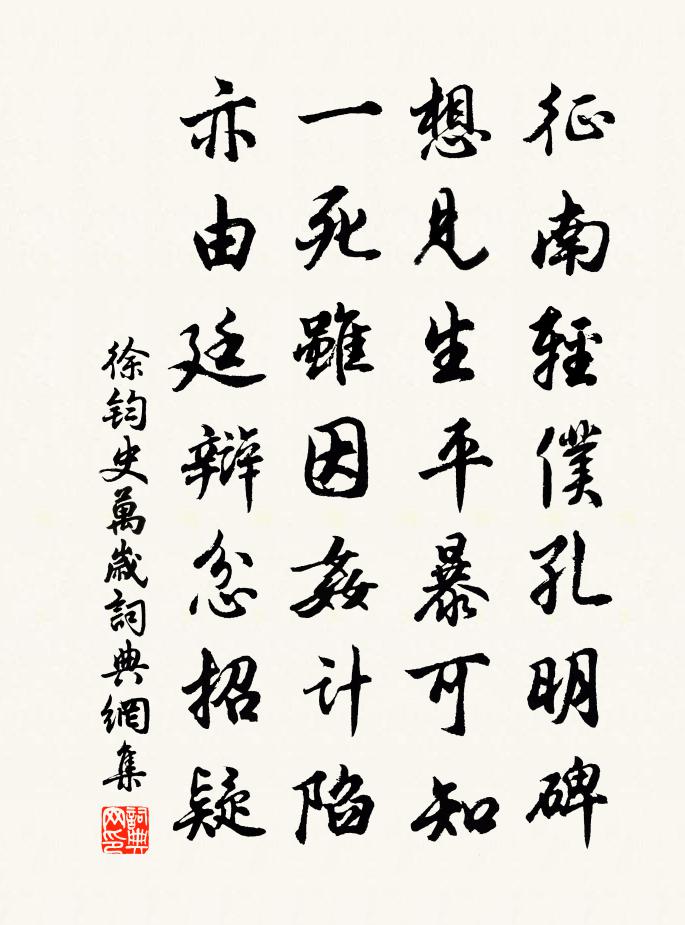 征南輕僕孔明碑
想見生平暴可知
一死雖因姦計陷
亦由廷辯忿招疑
徐鈞史萬歲詞典網集
詞典网印